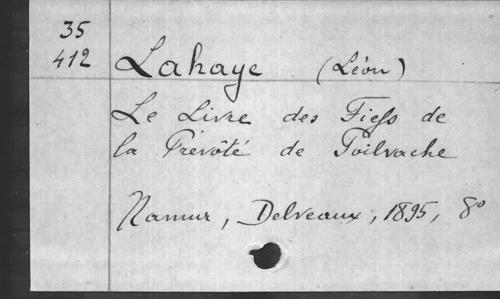 35
412
Lahaye (Léon)
Le Livre des Fiefs de
la Prévôté de Poilvache
Namur, Delvaux, 1895, 8o